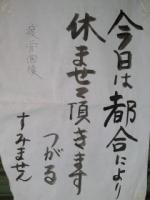 今日は都合により
休ませて頂きます
つがる
すみません